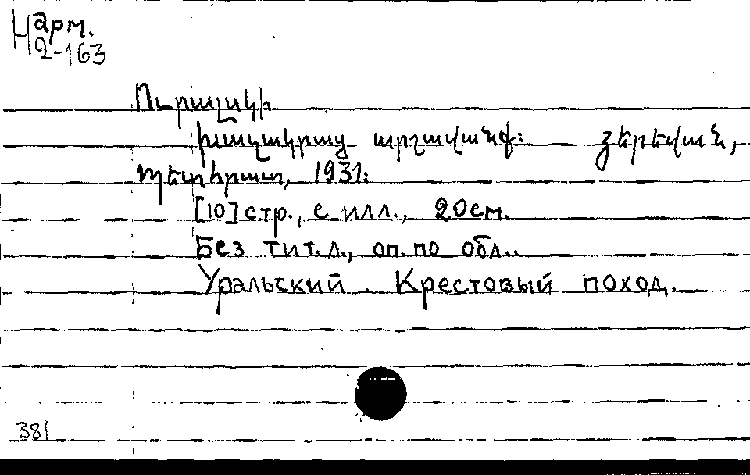 Нарм.
2-163
Ուրալսկի
խաչակրաց արշավանք։ Յերեվան,
պետհրատ, 1931։
[10] стр., с илл., 20см.
Без тит.л., оп.по обл..
Уральский. Крестовый поход.
381